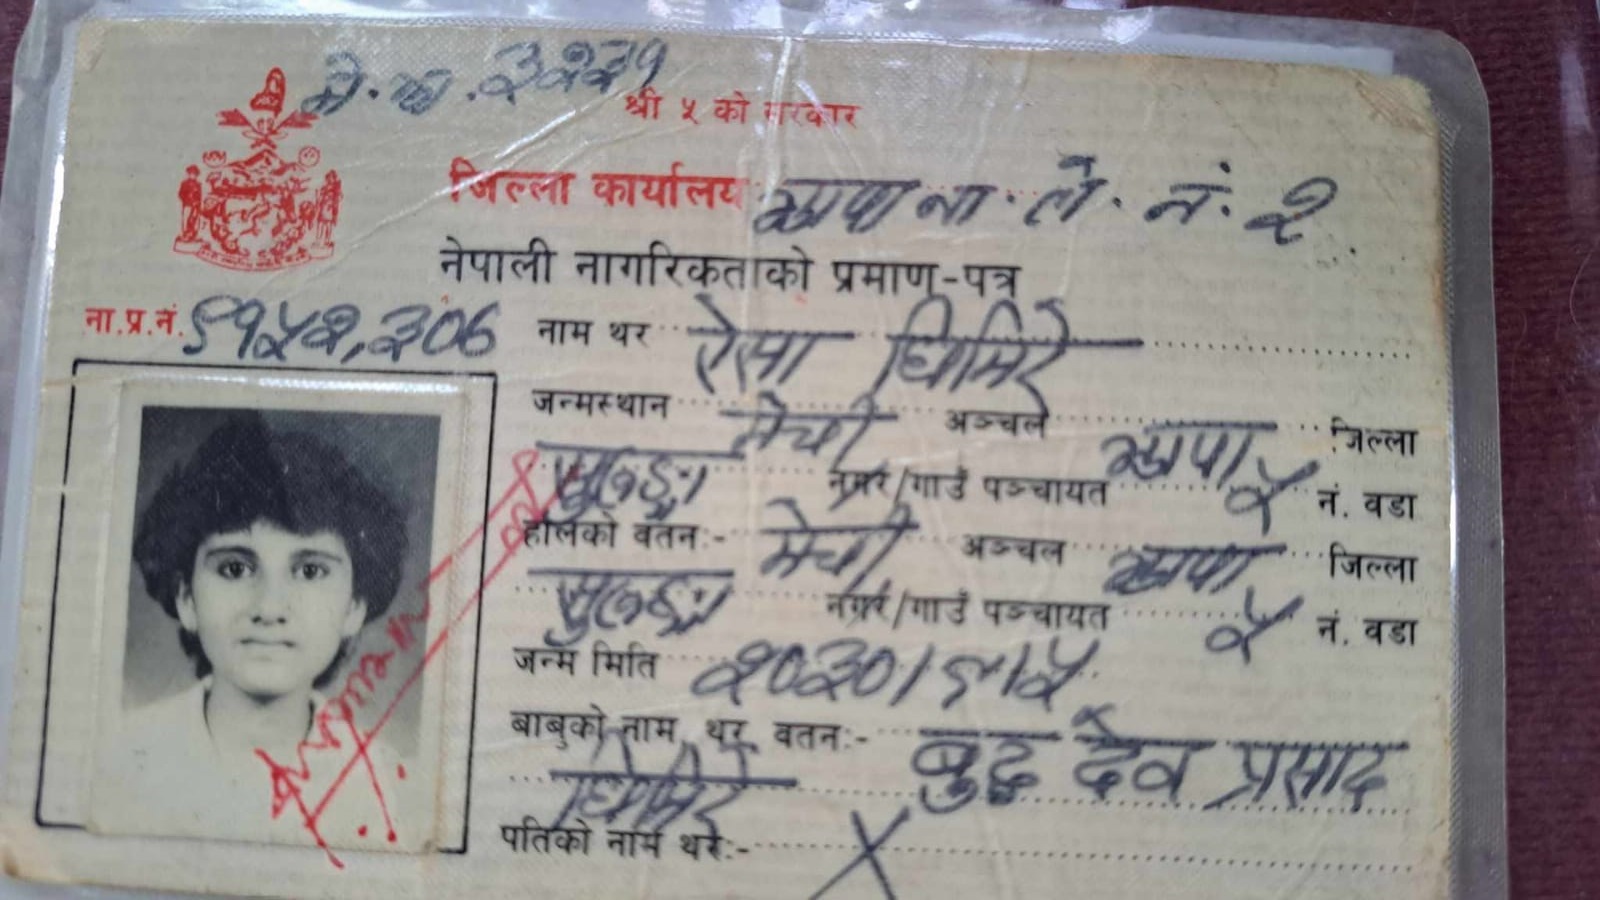 मे.झा. ३२२३१
श्री ५ को सरकार
जिल्ला कार्यालय झापा ना. ले. नं. २
नेपाली नागरिकताको प्रमाण-पत्र
ना.प्र.नं.
नाम थर ऐसा घिमिरे
जन्मस्थान मेची अञ्चल झापा जिल्ला
सुरुङ्गा नगर/गाउँ पञ्चायत ५ नं. वडा
हालको वतन:- मेची अञ्चल झापा जिल्ला
सुरुङ्गा नगर/गाउँ पञ्चायत ५ नं. वडा
जन्म मिति २०३०।९।५
बाबुको नाम थर वतन:- बुद्ध देव प्रसाद
घिमिरे
पतिको नाम थर:- X